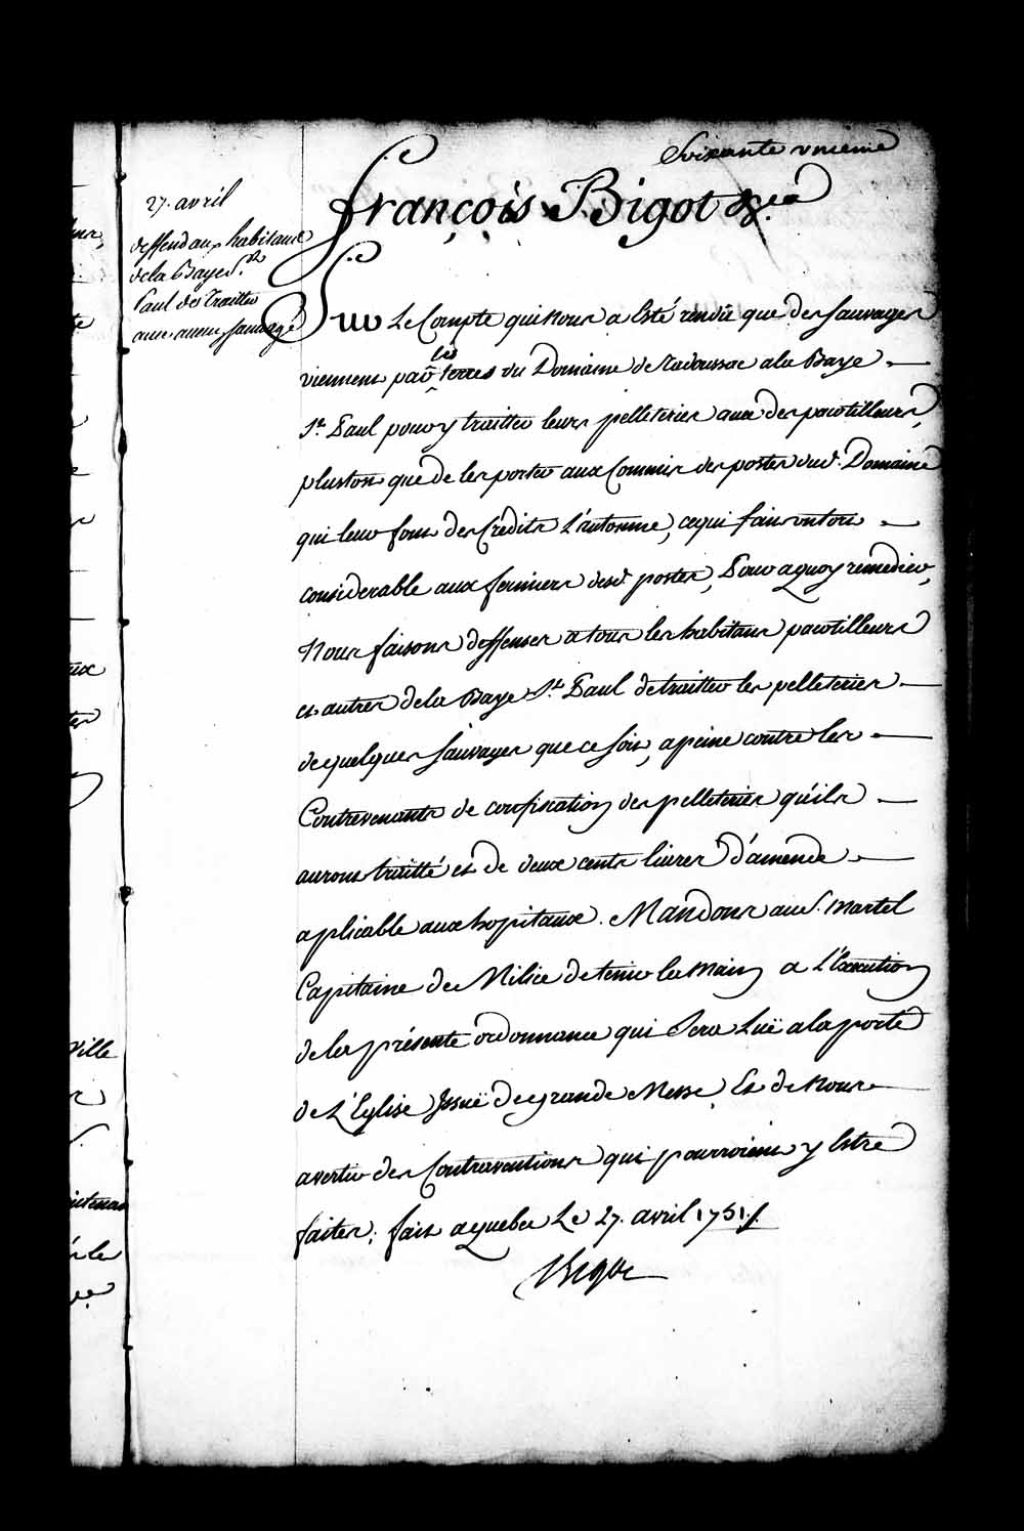 Soixante unieme
françois Bigot &.ca
27. avril
deffend aux habitans
de la Baye S.t
Paul de traitter
avec aucun sauvage
Sur Le Compte qui nous a Esté rendu que des sauvages
viennent par les terres du Domaine de Tadoussac a la Baye
S.t Paul pour y traitter leurs pelleteries avec des pacotilleurs,
plustost que de les porter aux Commis des postes dud. Domaine
qui leur font des Crédits L'automne, ce qui fait un tort
considerable aux fermiers desd. postes, Pour a quoy remedier,
Nous faisons deffenses a tous les habitans pacotilleurs
et autres de la Baye S.t Paul de traitter les pelleteries
de quelques sauvages que ce soit, a peine contre les
Contrevenants de confiscation des pelleteries qu'ils
auront traitté et de deux cents livres d'amende
aplicable aux hopitaux. Mandons au S. Martel
Capitaine de Milice de tenir la main a L'Execution
de la présente ordonnance qui Sera Luë a la porte
de L'Eglise Issuë de grande Messe, Et de Nous
avertir des Contraventions qui pourroient y Estre
faites; fait a quebec Le 27. avril 1751./.
Bigot
ville